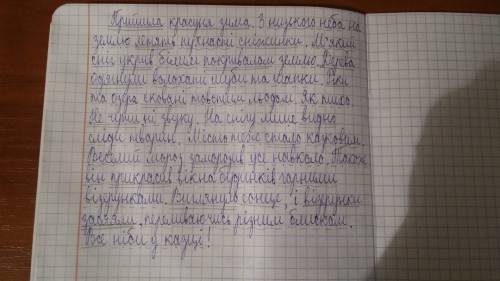 Прийшла красуня зима. З низького неба на
землю летять пухнасті сніжинки. М'який
сніг укрив білим покривалом землю. Дерева
одягнули волохаті шуби та шапки. Ріки
та озера сковані товстим льодом. Як тихо.
Не чутно звуку. На снігу лише видно
сліди тварин. Місто теж стало казковим.
Веселий мороз заморозив усе навколо. Також
він прикрасив вікна будинків гарними
візерунками. Виглянуло сонце, і візерунки
засяяли, переливаючись різним блиском.
Все ніби у казці!